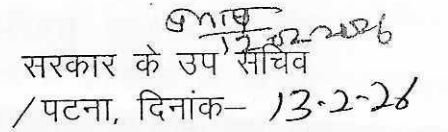 12-02-2026
सरकार के उप सचिव
/पटना, दिनांक– 13-2-26